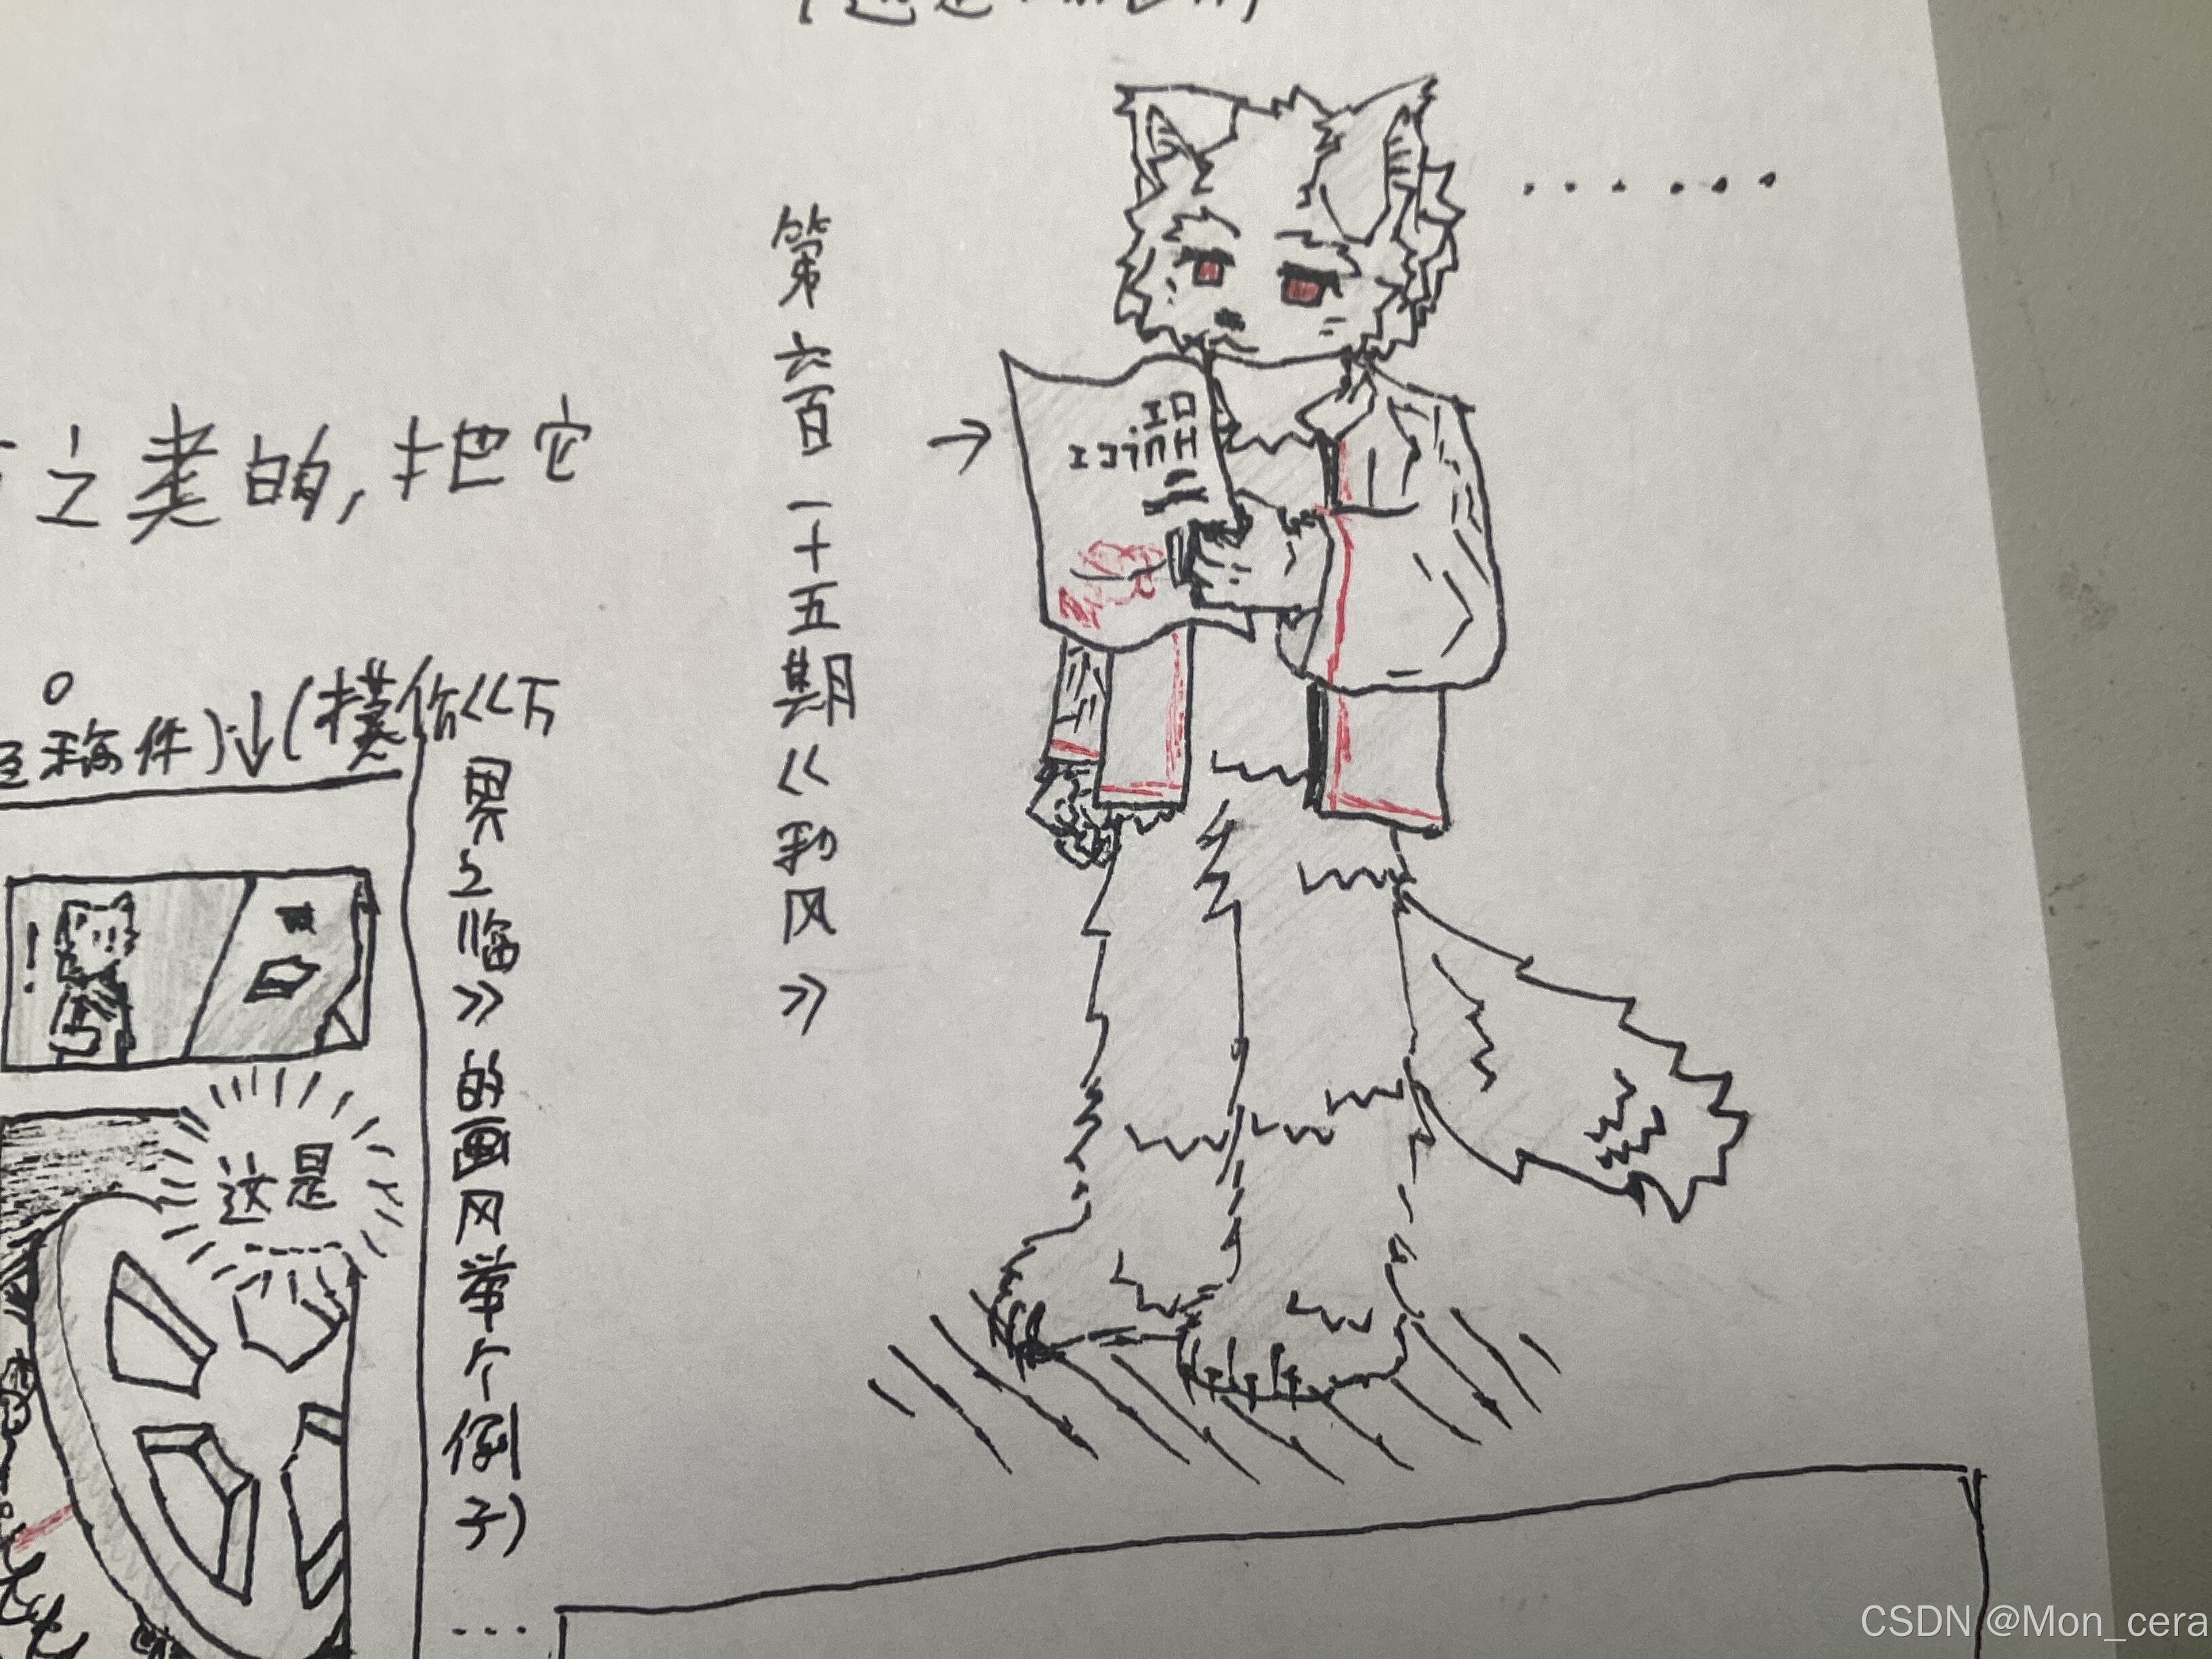 之类的,把它
称件)↓(模仿《万
界之临》的画风举个例子)
……
这是
!
第六百一十五期《秋风》
→
……
CSDN @Mon_cera